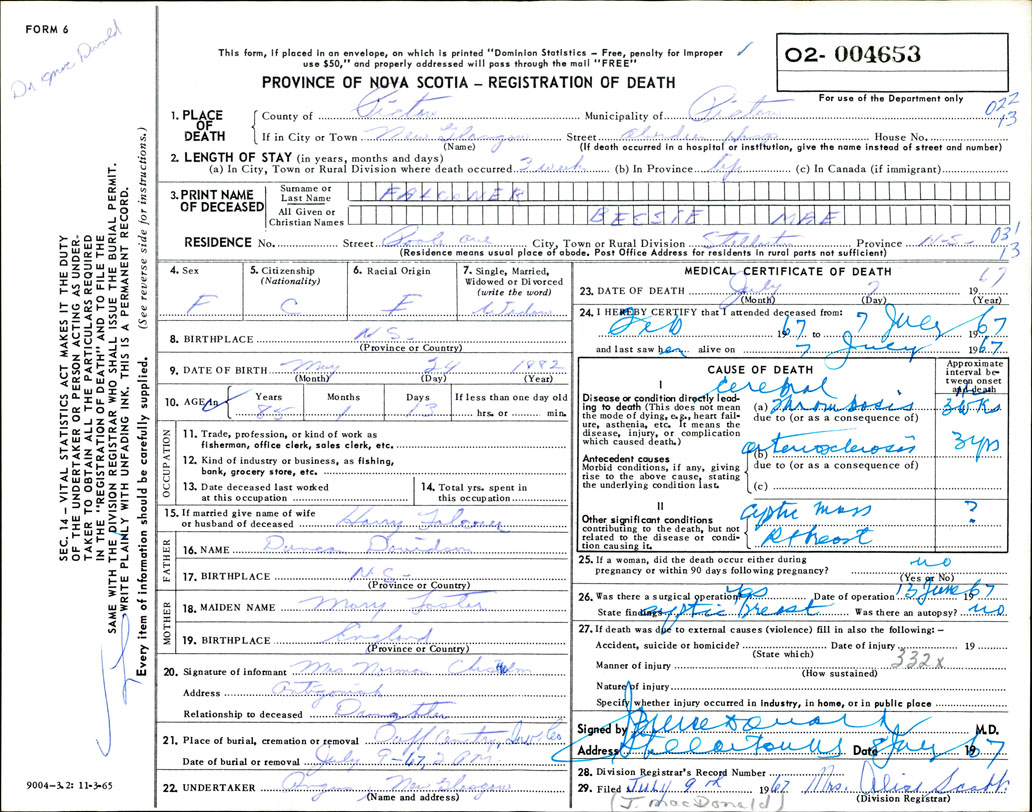 FORM 6
This form, if placed in an envelope, on which is printed "Dominion Statistics – Free, penalty for improper
use $50," and properly addressed will pass through the mail "FREE"
PROVINCE OF NOVA SCOTIA – REGISTRATION OF DEATH
02- 004653
For use of the Department only
022
13
1. PLACE OF DEATH
County of Pictou Municipality of Pictou
If in City or Town New Glasgow Street Aberdeen Hosp House No.
(Name) (If death occurred in a hospital or institution, give the name instead of street and number)
2. LENGTH OF STAY (in years, months and days)
(a) In City, Town or Rural Division where death occurred 3 week (b) In Province life (c) In Canada (if immigrant)
3. PRINT NAME OF DECEASED
Surname or Last Name FALCONER
All Given or Christian Names BESSIE MAE
RESIDENCE No. Street Poole ave City, Town or Rural Division Stellarton Province N-S- 031
13
(Residence means usual place of abode. Post Office Address for residents in rural parts not sufficient)
4. Sex F
5. Citizenship (Nationality) C
6. Racial Origin E
7. Single, Married, Widowed or Divorced (write the word) Widow
8. BIRTHPLACE N S-
(Province or Country)
9. DATE OF BIRTH May 24 1882
(Month) (Day) (Year)
10. AGE Years 85 Months 1 Days 13 If less than one day old hrs. or min.
OCCUPATION
11. Trade, profession, or kind of work as fisherman, office clerk, sales clerk, etc.
12. Kind of industry or business, as fishing, bank, grocery store, etc.
13. Date deceased last worked at this occupation
14. Total yrs. spent in this occupation
15. If married give name of wife or husband of deceased Harry Falconer
FATHER
16. NAME Duncan Davidson
17. BIRTHPLACE N S-
(Province or Country)
MOTHER
18. MAIDEN NAME Mary Foster
19. BIRTHPLACE England
(Province or Country)
20. Signature of informant Mrs Norman Chisholm
Address Antigonish
Relationship to deceased Daughter
21. Place of burial, cremation or removal
Date of burial or removal July 9-67, 2 P.M.
22. UNDERTAKER New Glasgow
(Name and address)
MEDICAL CERTIFICATE OF DEATH
23. DATE OF DEATH July 7 1967
(Month) (Day) (Year)
24. I HEREBY CERTIFY that I attended deceased from:
Feb 1967 to 7 July 1967
and last saw her alive on 7 July 1967
CAUSE OF DEATH
Approximate interval between onset and death
I
Disease or condition directly leading to death (This does not mean the mode of dying, e.g., heart failure, asthenia, etc. It means the disease, injury, or complication which caused death.)
Cerebral
(a) Thrombosis 3 wks
due to (or as a consequence of)
Antecedent causes
Morbid conditions, if any, giving rise to the above cause, stating the underlying condition last.
(b) arteriosclerosis 3 yrs
due to (or as a consequence of)
(c)
II
Other significant conditions contributing to the death, but not related to the disease or condition causing it.
cystic mass ?
R breast
25. If a woman, did the death occur either during pregnancy or within 90 days following pregnancy? no
(Yes or No)
26. Was there a surgical operation? yes Date of operation 13 June 1967
State findings cystic breast Was there an autopsy? no
27. If death was due to external causes (violence) fill in also the following: –
Accident, suicide or homicide? Date of injury 19
(State which)
332x
Manner of injury
(How sustained)
Nature of injury
Specify whether injury occurred in industry, in home, or in public place
Signed by M.D.
Address Stellarton NS Date 8 July 1967
28. Division Registrar's Record Number
29. Filed July 9th 1967 Mrs. Alice Scott
(Division Registrar)
(J. MacDonald)
SEC. 14 – VITAL STATISTICS ACT MAKES IT THE DUTY
OF THE UNDERTAKER OR PERSON ACTING AS UNDER-
TAKER TO OBTAIN ALL THE PARTICULARS REQUIRED
IN THE "REGISTRATION OF DEATH" AND TO FILE THE
SAME WITH THE DIVISION REGISTRAR WHO SHALL ISSUE THE BURIAL PERMIT.
WRITE PLAINLY WITH UNFADING INK. THIS IS A PERMANENT RECORD.
Every item of information should be carefully supplied. (See reverse side for instructions.)
9004-3.2: 11-3-65